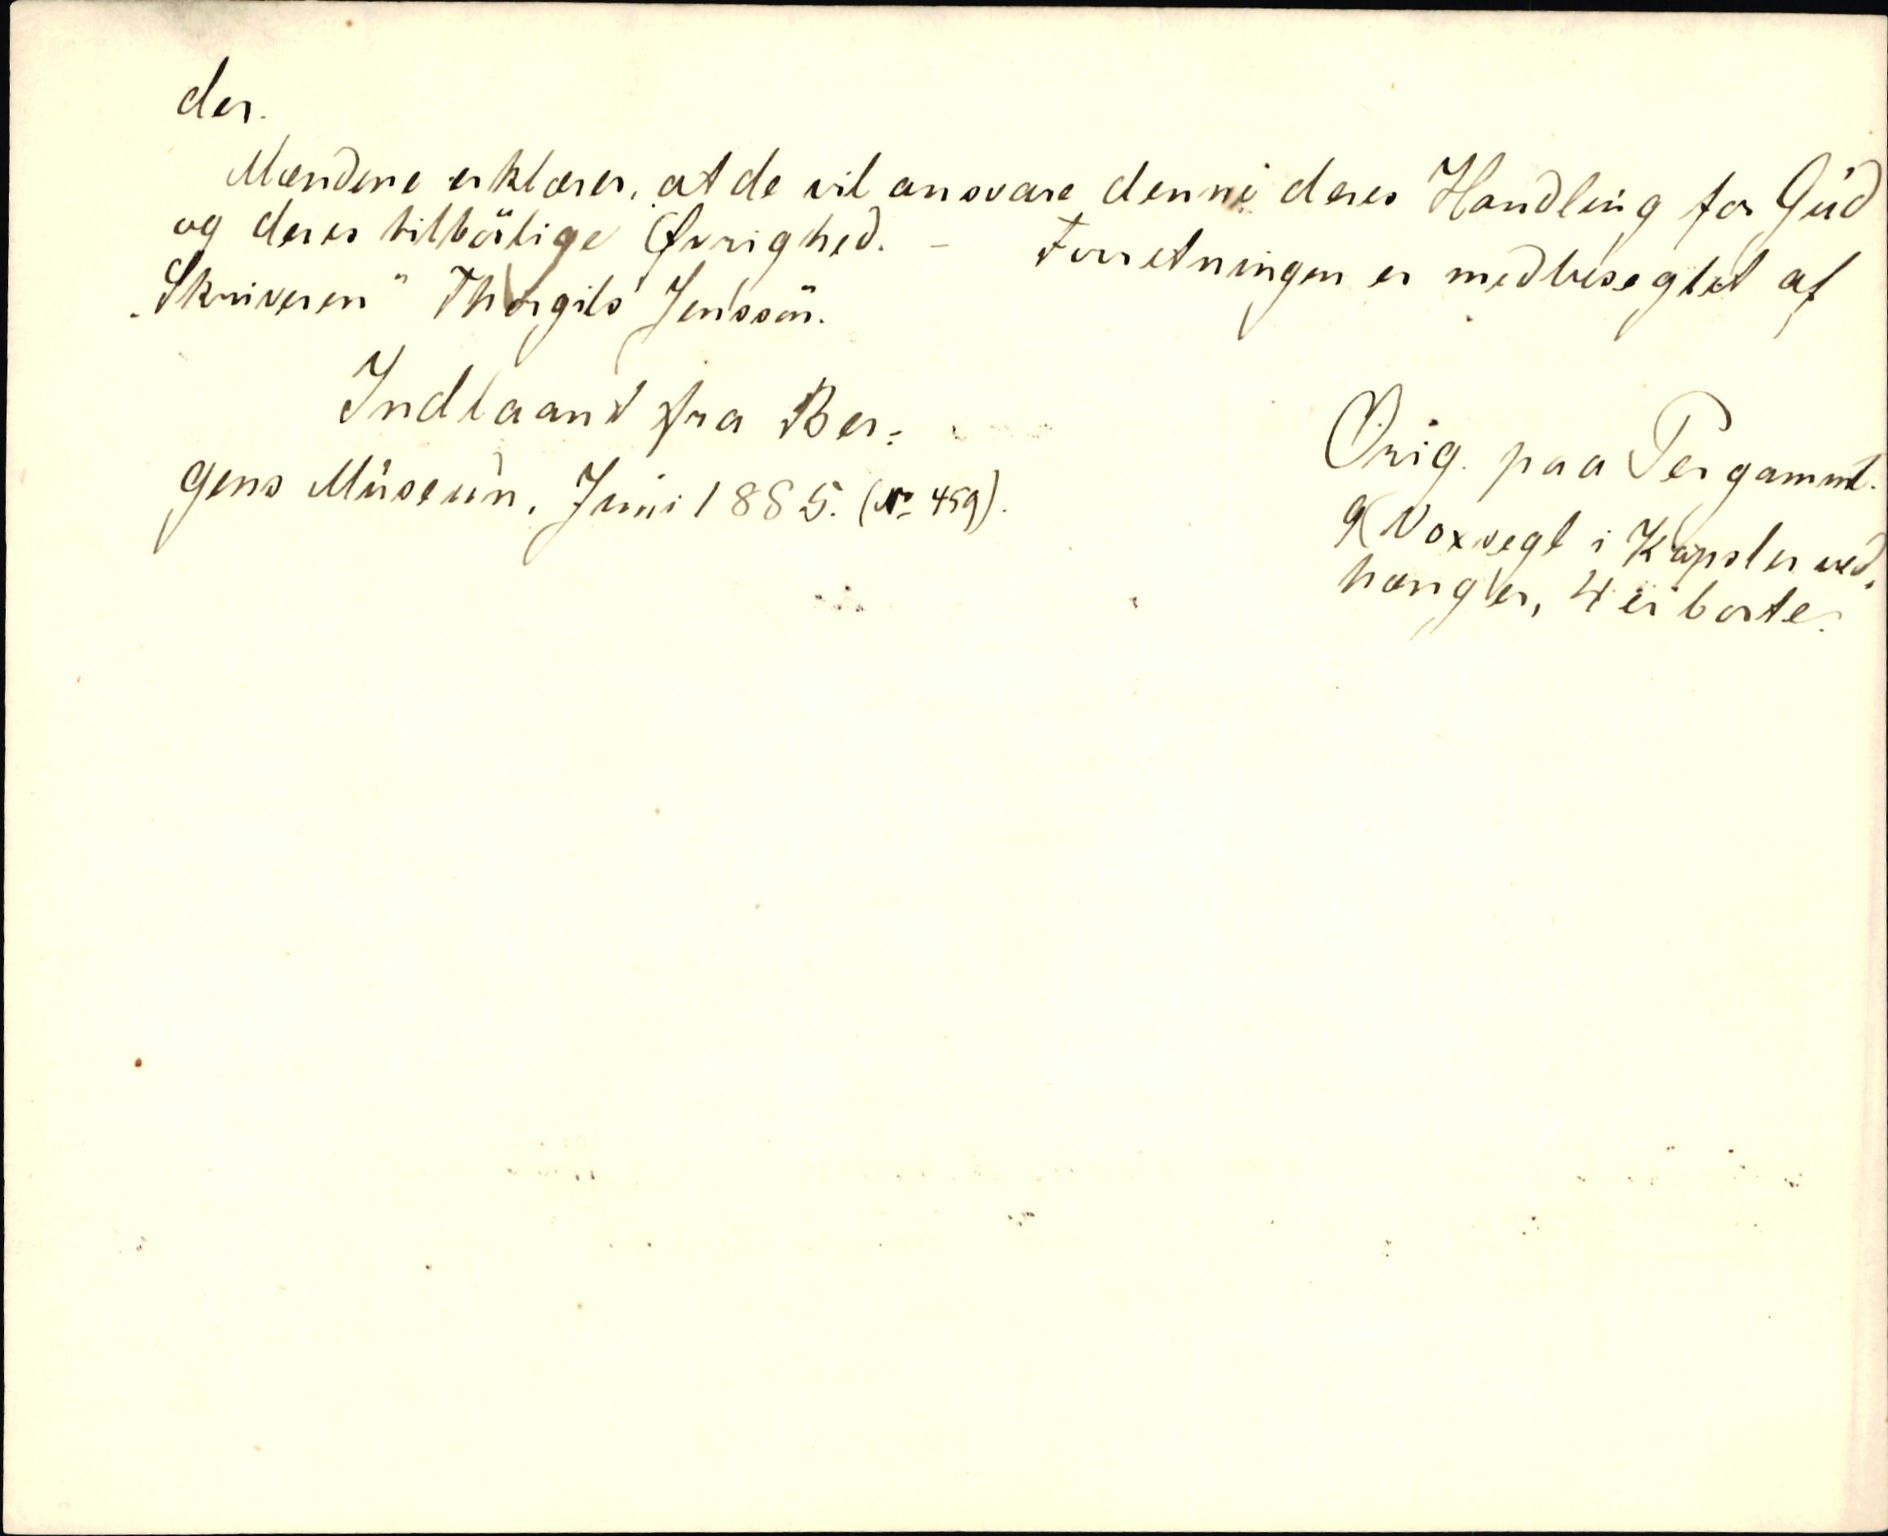 der.
Mændene erklærer, at de vil ansvare denne deres Handling for Gud
og deres tilbörlige Øvrighed. – Forretningen er medbeseglet af
"Skriveren" Thorgils Jenssön.
Indlaant fra Ber-
gens Museum, Juni 1885. (No 459).
Orig. paa Pergamt.
9 Voxsegl i Kapsler ved-
hænger, 4 er borte.